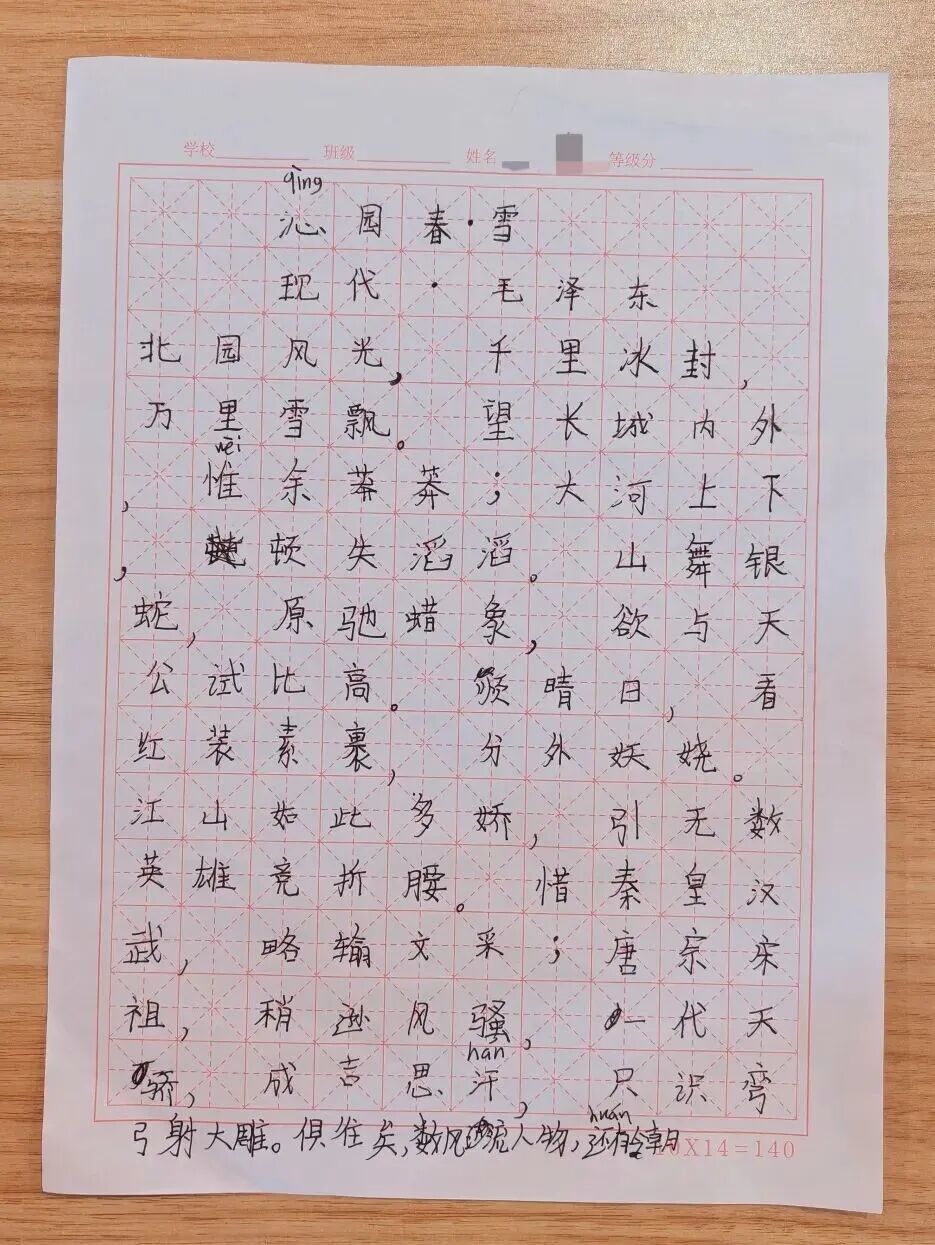 学校 班级 姓名 等级分
qìng
沁园春·雪
现代·毛泽东
北园风光，千里冰封，
万里雪飘。望长城内外
wéi
，惟余莽莽；大河上下
，顿失滔滔。山舞银
蛇，原驰蜡象，欲与天
公试比高。须晴日，看
红装素裹，分外妖娆。
江山如此多娇，引无数
英雄竞折腰。惜秦皇汉
武，略输文采；唐宗宋
祖，稍逊风骚，一代天
hán
骄，成吉思汗，只识弯
huán
弓射大雕。俱往矣，数风流人物，还看今朝
10X14=140